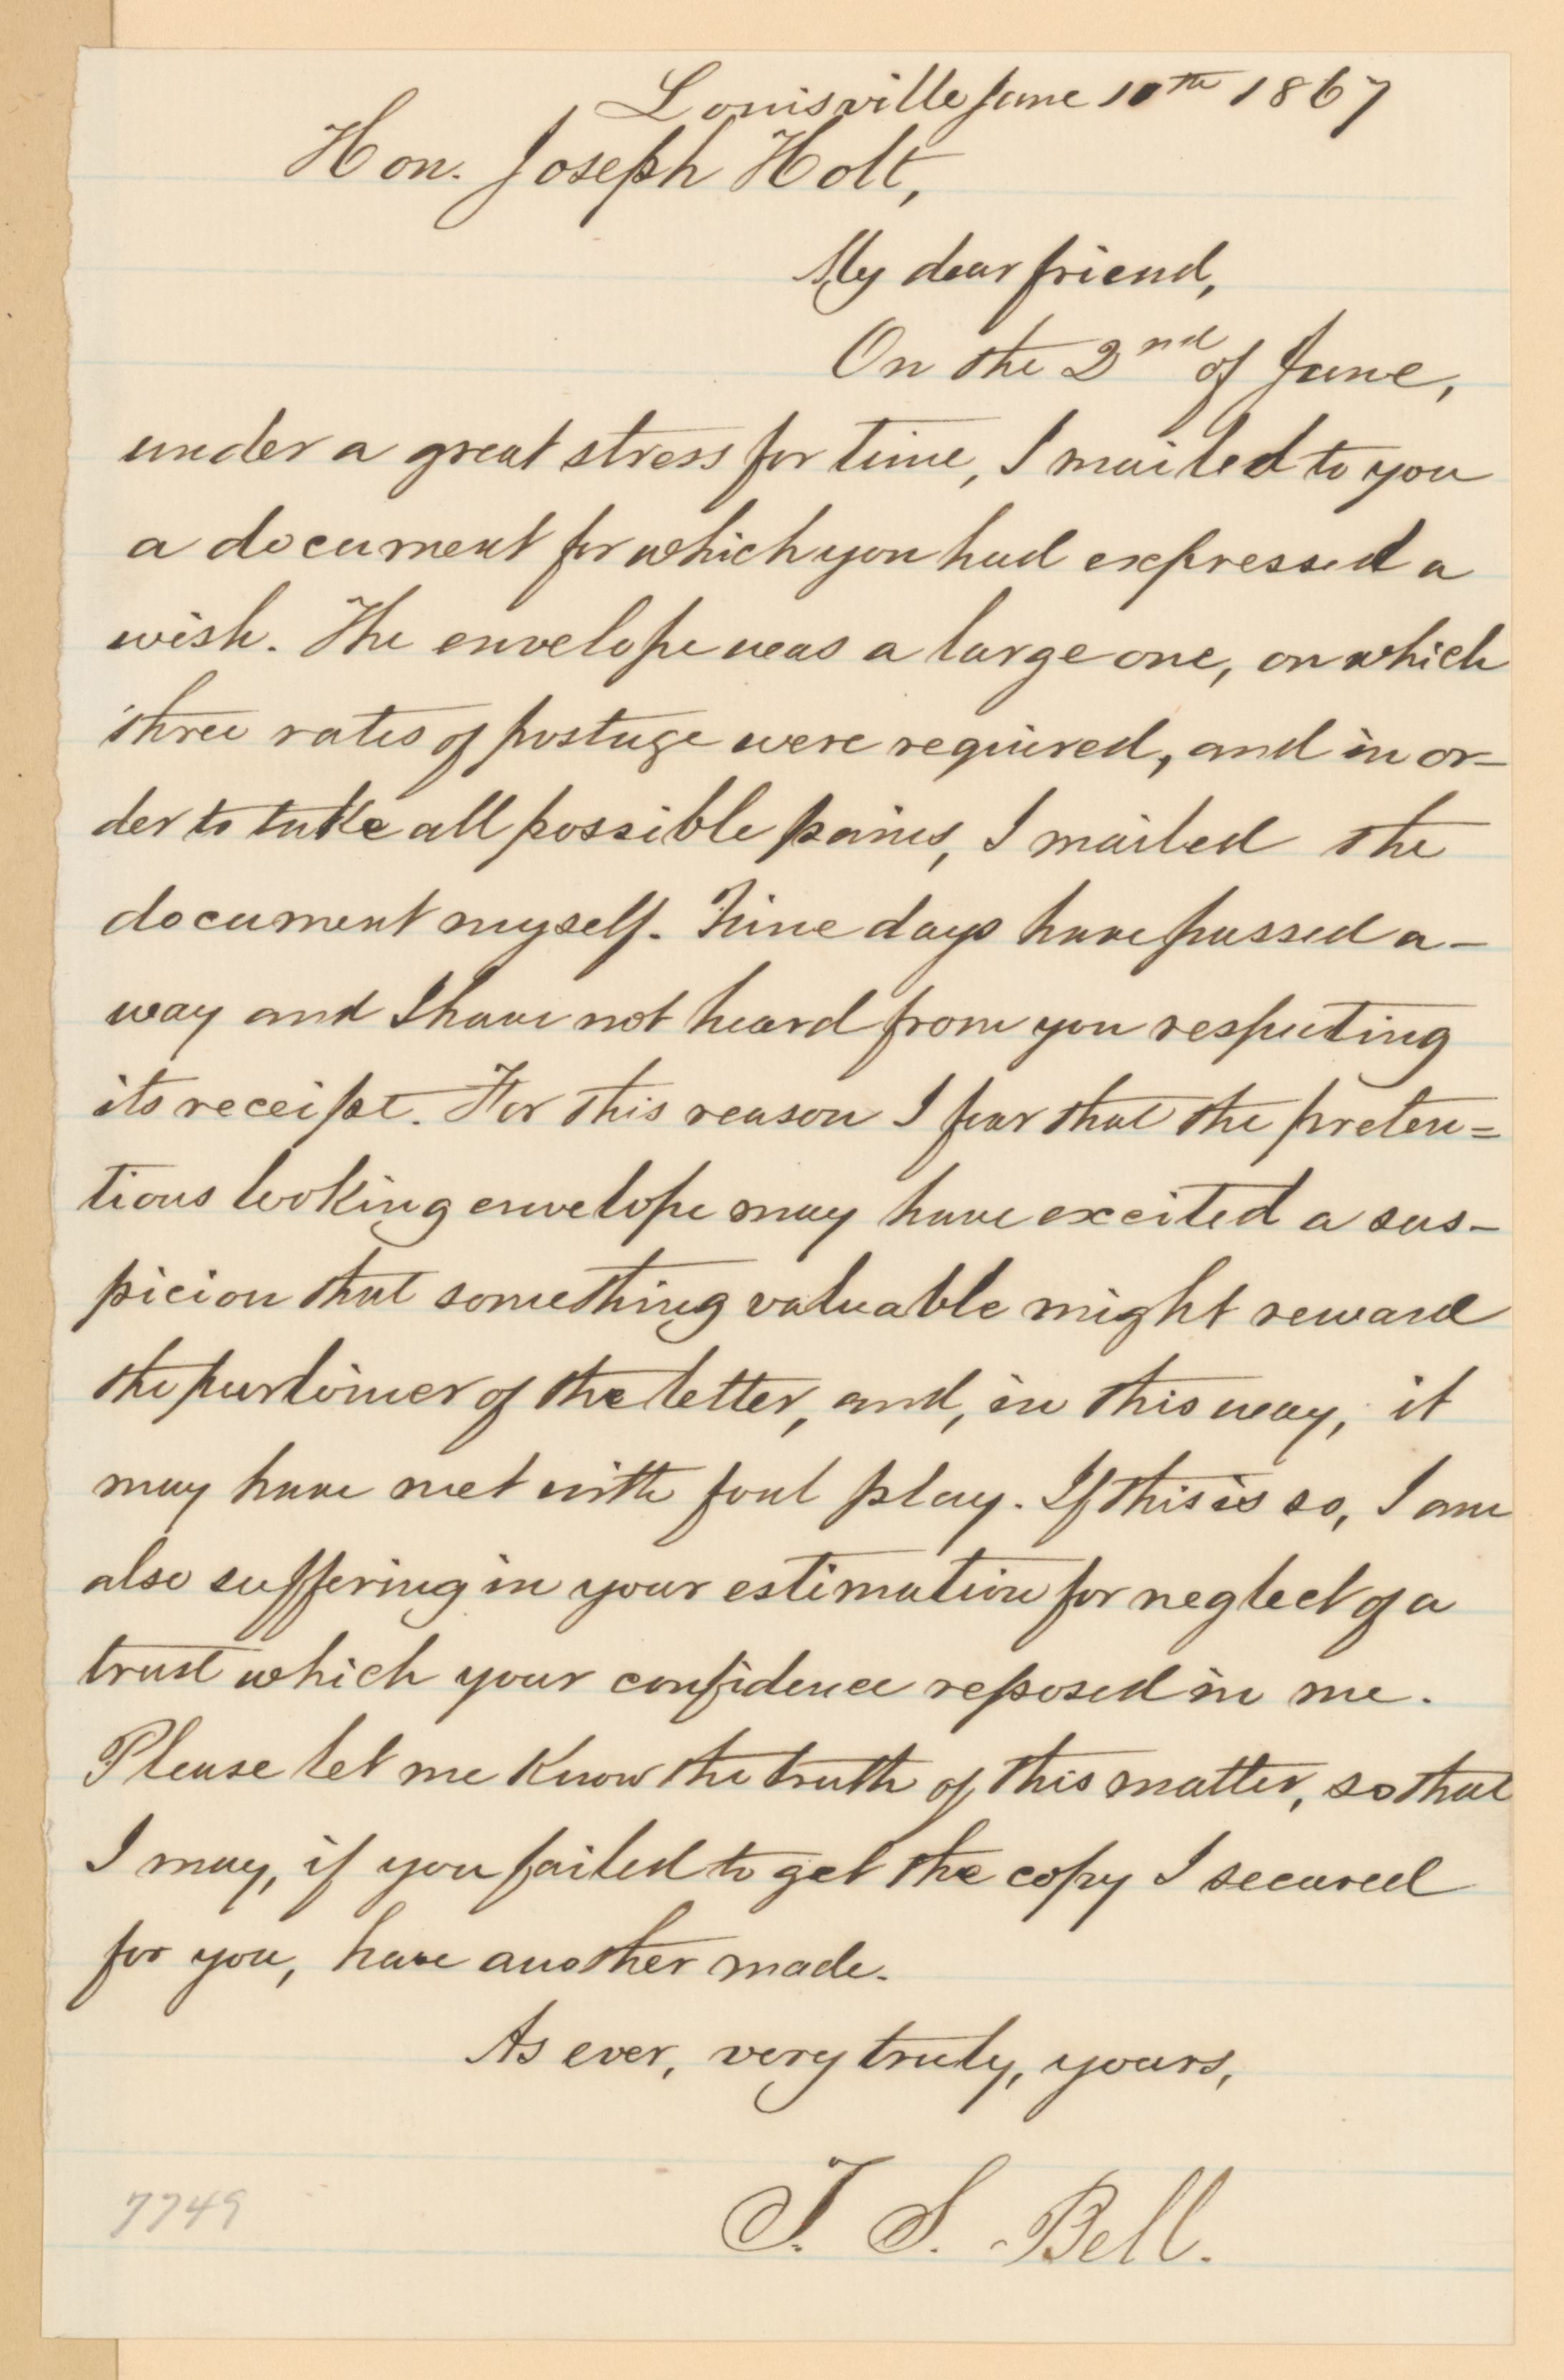 Louisville June 10th 1867
Hon. Joseph Holt,
My dear friend,
On the 2nd of June,
under a great stress for time, I mailed to you
a document for which you had expressed a
wish. The envelope was a large one, on which
three rates of postage were required, and in or-
der to take all possible pains, I mailed the
document myself. Nine days have passed a-
way and I have not heard from you respecting
its receipt. For this reason I fear that the preten=
tious looking envelope may have excited a sus-
picion that something valuable might reward
the purloiner of the letter, and, in this way, it
may have met with foul play. If this is so, I am
also suffering in your estimation for neglect of a
trust which your confidence reposed in me.
Please let me know the truth of this matter, so that
I may, if you failed to get the copy I secured
for you, have another made.
As ever, very truly, yours,
T. S. Bell.
7749